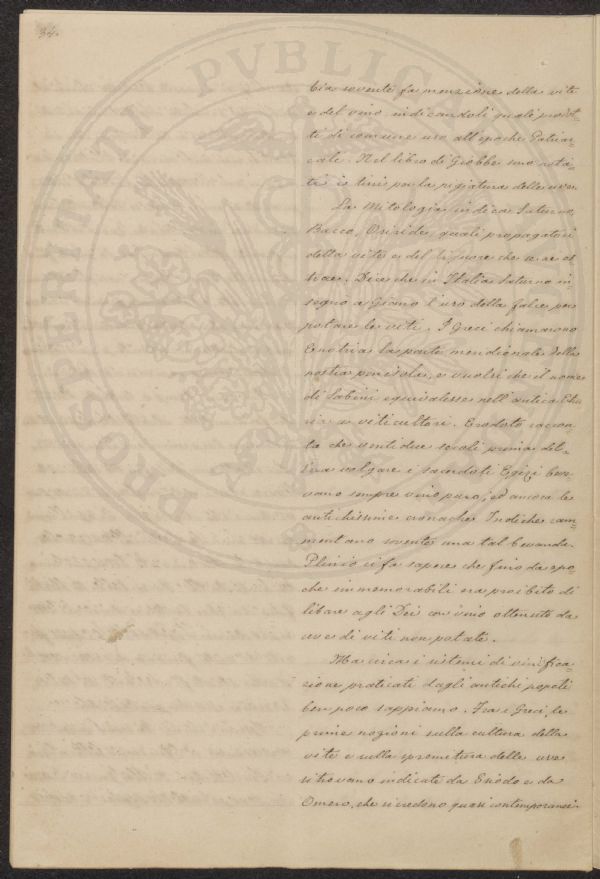 34.
PROSPERITATI PVBLICA
bia sovente fa menzione della vite
e del vino indicandoli quali prodot-
ti di comune uso all'epoche Patriar-
cali. Nel libro di Giobbe sono nota-
ti i tini per la pigiatura delle uve.
La Mitologia indica Saturno,
Bacco, Osiride, quali propagatori
della vite e del liquore che se ne es
trae. Dice che in Italia Saturno in
segnò a Giano l'uso della falce per
potare le viti. I Greci chiamarono
Enotria la parte meridionale della
nostra penisola, e vuolsi che il nome
di Sabini equivalesse nell'antica Etru
ria a viticultori. Erodoto raccon-
ta che ventidue secoli prima del-
l'Era volgare i sacerdoti Egizi bev-
vano sempre vino puro; ed ancora le
antichissime cronache Indiche ram-
mentano sovente una tal bevanda.
Plinio ci fa sapere che fino da epo-
che immemorabili era proibito di
libare agli Dei con vino ottenuto da
uve di viti non potate.
Ma circa i sistemi di vinifica-
zione praticati dagli antichi popoli
ben poco sappiamo. Fra i Greci, le
prime nozioni sulla cultura della
vite e sulla spremitura delle uve
si trovano indicate da Esiodo e da
Omero, che si credono quasi contemporanei.